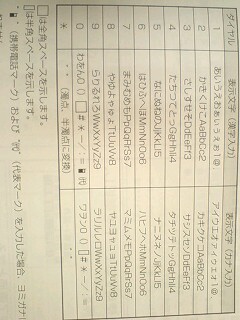 ダイヤル 表示文字（漢字入力） 表示文字（カナ入力）
1 あいうえおぁぃぅぇぉ1@ アイウエオァィゥェォ1@
2 かきくけこAaBbCc2 カキクケコAaBbCc2
3 さしすせそDdEeFf3 サシスセソDdEeFf3
4 たちつてとっGgHhIi4 タチツテトッGgHhIi4
5 なにぬねのJjKkLl5 ナニヌネノJjKkLl5
6 はひふへほMmNnOo6 ハヒフヘホMmNnOo6
7 まみむめもPpQqRrSs7 マミムメモPpQqRrSs7
8 やゆよゃゅょTtUuVv8 ヤユヨャュョTtUuVv8
9 らりるれろWwXxYyZz9 ラリルレロWwXxYyZz9
0 わをん ワヲン
＊ （濁点、半濁点に変換）
□は全角スペースを示します。
は半角スペースを示します。
（携帯電話マーク）および （代表マーク）を入力した場合、ヨミガナ